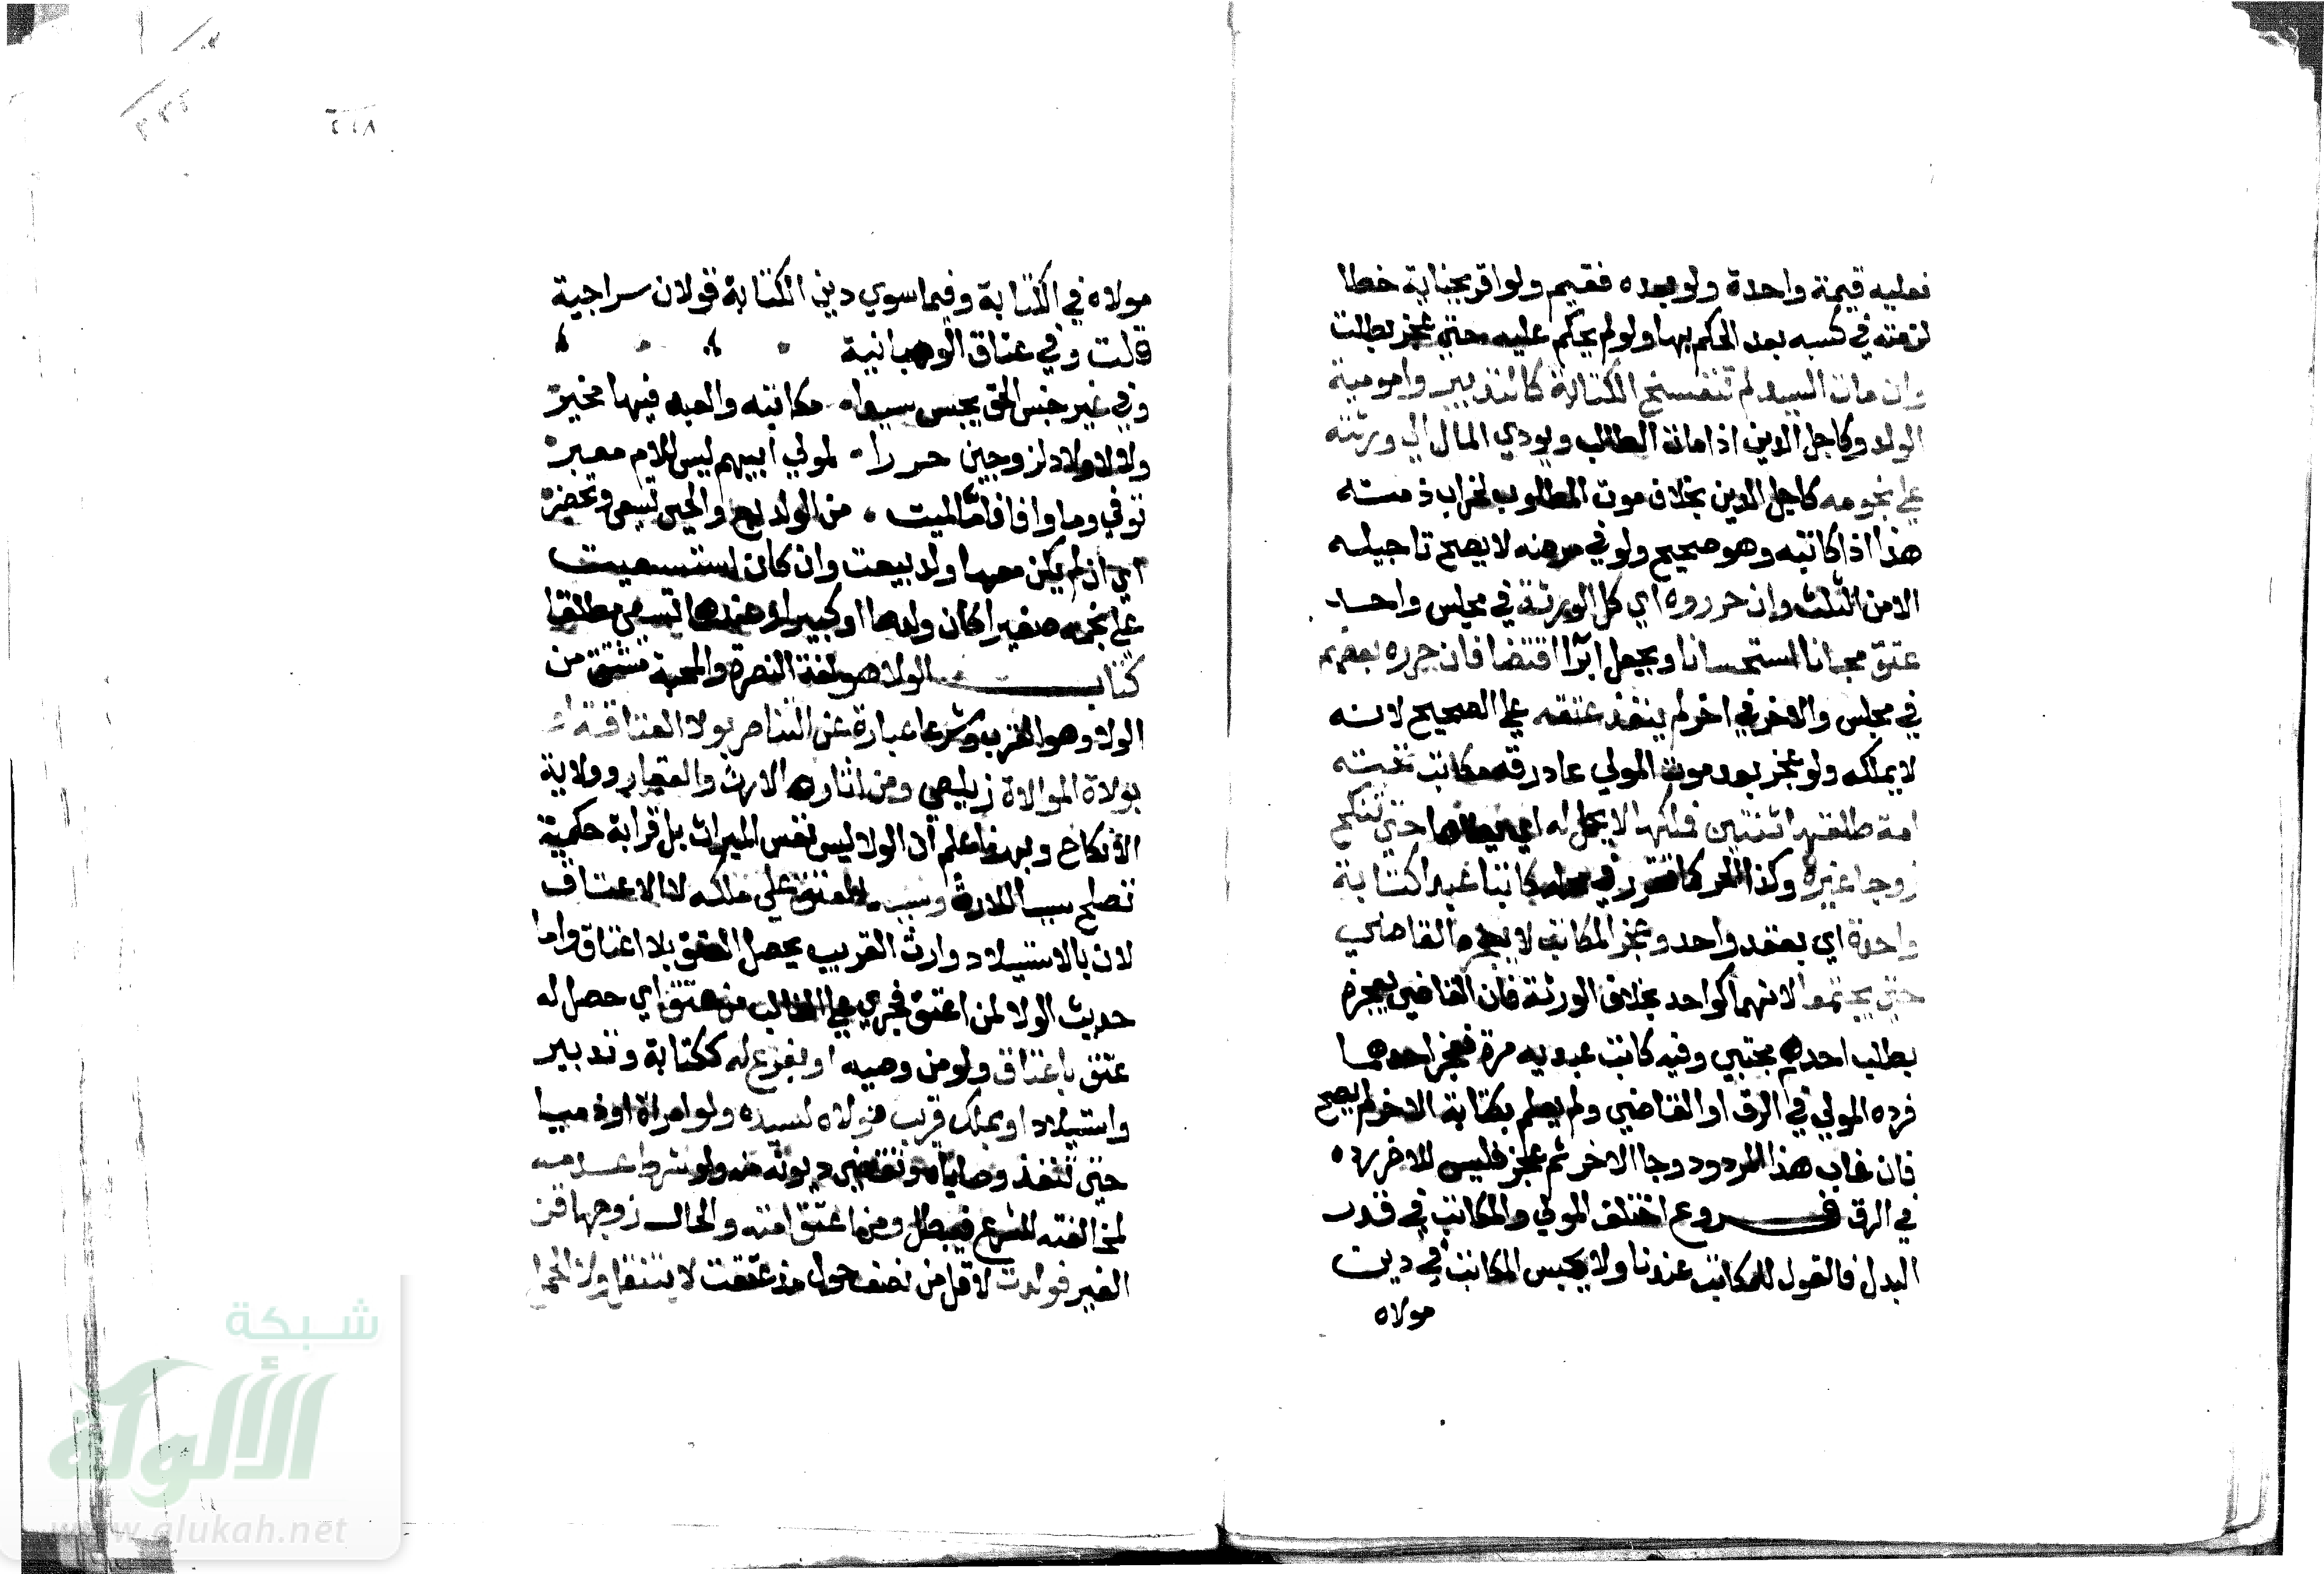 فعليه قيمة واحدة ولو بعده فقيم ولو اقر بجناية خطا
لزمته في كسبه بعد الحكم بها ولو لم يحكم عليه حتي عجز بطلت
وان مات السيد لم تنفسخ الكتابة كالتدبير وامومية
الولد وكاجل الدين اذا مات الطالب ويودي المال الي ورثته
علي نجومه كاجل الدين بخلاف موت المطلوب لخراب ذمته
هذا اذا كاتبه وهو صحيح ولو في مرضه لا يصح تاجيله
الا من الثلث وان حرروه اي كل الورثة في مجلس واحد
عتق مجانا استحسانا ويجعل ابرا اقتضا فان حرره بعضهم
في مجلس والاخر في اخر لم ينفذ عتقه علي الصحيح لانه
لا يملكه ولو عجز بعد موت المولي عاد رقه مكاتب تحته
امة طلقها ثنتين فملكها لا يحل له وطاها حتي تنكح
زوجا غيره وكذا الحر كاتبا عبدا كتابة
واحدة اي بعقد واحد وعجز المكاتب لا يعجزه القاضي
حتي يجتمعا لانهما كواحد بخلاف الورثة فان القاضي يعجزه
بطلب احدهم مجتبي وفيه كاتب عبديه مرة فعجز احدهما
فرده المولي في الرق او القاضي ولم يعلم بكتابة الاخر لم يصح
فان غاب هذا المردود وجا الاخر ثم عجز فليس للاخر رده
في الرق فروع اختلف المولي والمكاتب في قدر
البدل فالقول للمكاتب عندنا ولا يحبس المكاتب في دين
مولاه
٤١٨
مولاه في الكتابة وفيما سوي دين الكتابة قولان سراجية
قلت وفي عتاق الوهبانية
وفي غير جنس الحق يحبس سيدا مكاتبه والعبد فيها مخير
ولا لاولاد لزوجين حررا لمولي ابيهم ليس للام معبر
توفي وما وافا فاما لميت من الولد بع والحي تسعي وتحضر
اي ان لم يكن معها ولد بيعت وان كان استسعيت
علي نجمه صغيرا كان ولدها او كبيرا وعندهما تسعي مطلقا
كتاب الولا هو لغة النصرة والمحبة مشتق من
الولا وهو القرب وشرعا عبارة عن التناصر بولا العتاقة او
بولاة الموالاة زيلعي ومن اثاره الارث والعقل وولاية
الانكاح وبهذا علم ان الولا ليس نفس الميراث بل قرابة حكمية
تصلح سببا للارث وسببه العتق علي ملكه لا الاعتاق
لان بالاستيلاد وارث القريب يحصل العتق بلا اعتاق واما
حديث الولا لمن اعتق فجري علي الغالب من عتق اي حصل له
عتق باعتاق ولو من وصيه او بفرع له ككتابة وتدبير
واستيلاد او بملك قريب فولاه لسيده ولو امراة او ذميا
حتي تنفذ وصاياه وتقضي ديونه منه ولو شرط عدمه
لمخالفته للشرع فيبطل ومن اعتق امته والحال زوجها قن
الغير فولدت لاقل من نصف حول مذ عتقت لا ينتقل ولا الحمل
شبكة
الألوكة
www.alukah.net